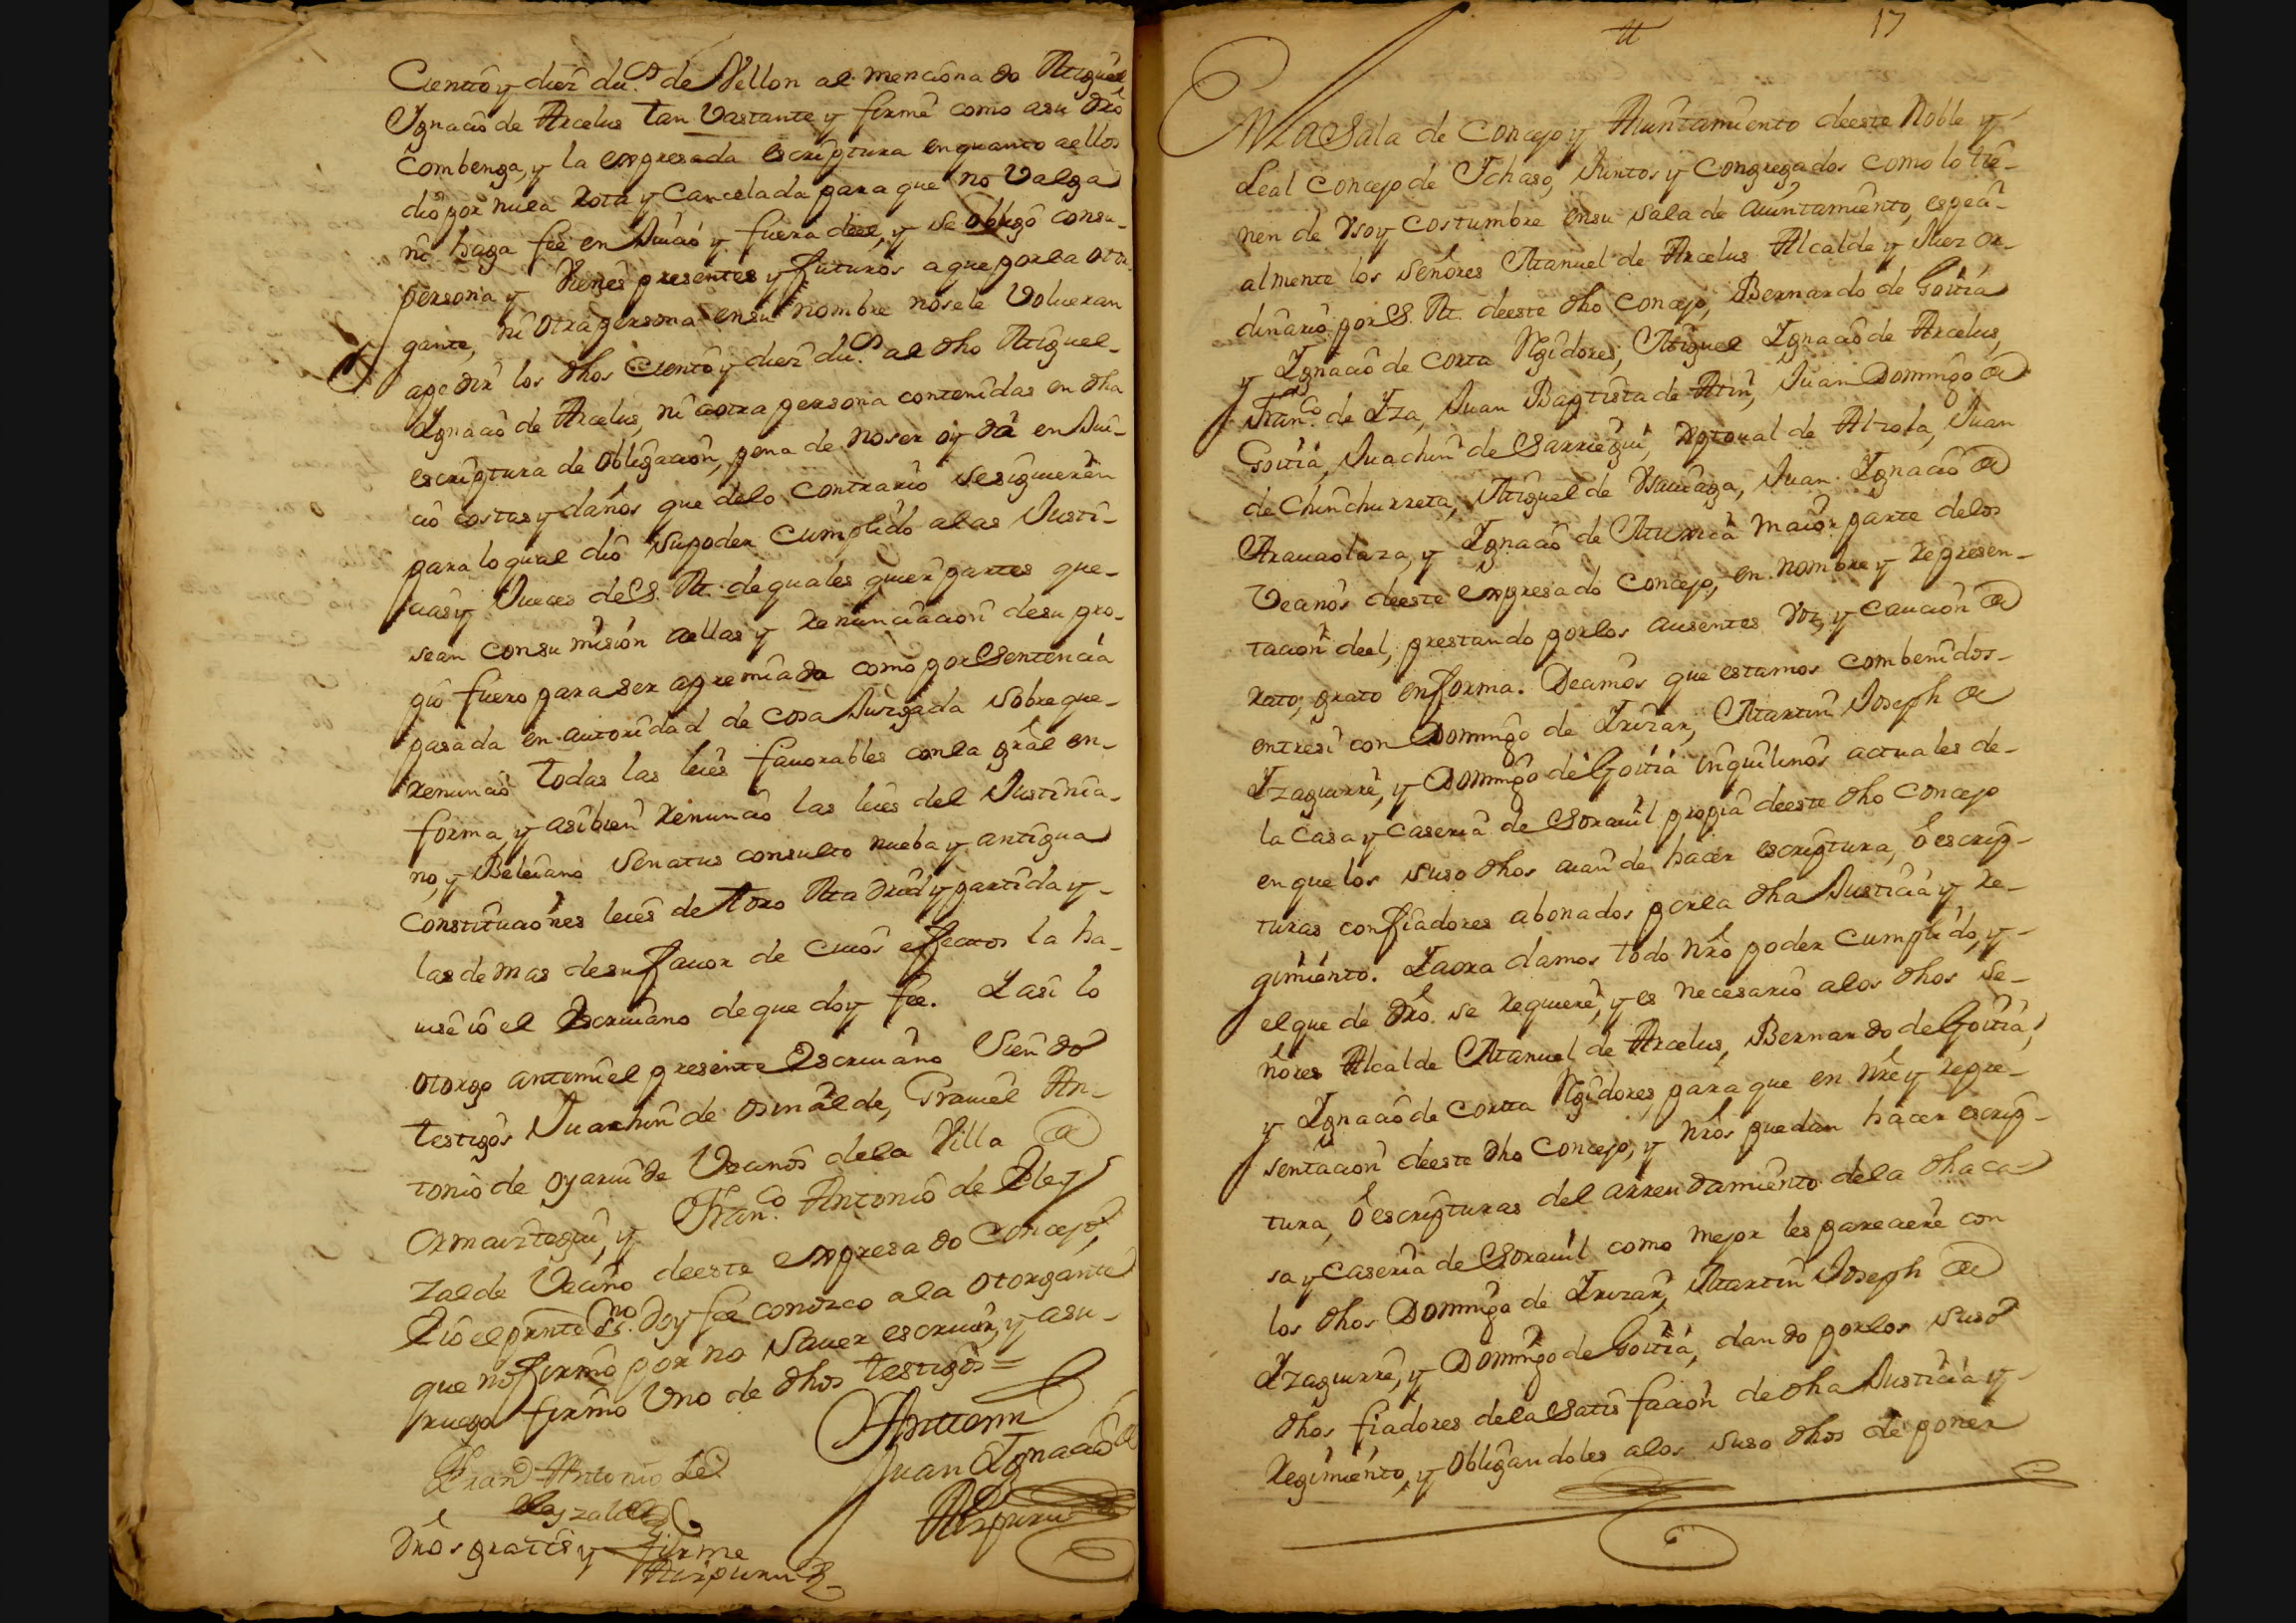 Ciento y diez du.s de Vellon al menciona do Miguel
Ygnacio de Arcelus tan Vastante y firme como asu dro
combenga, y la expresada escriptura en quanto aellos
dio por nula Rota y Cancelada para que no Valga
ni haga fee en Juicio y fuera deel, y se obligó consu
persona y Vienes presentes y futuros aque por la otor
gante, ni otra persona ensu nombre nosele Volueran
apedir los dhos Ciento y diez du.s al dho Miguel
Ygnacio de Arcelus, ni aotra persona contenidas en dha
escriptura de obligacion, pena de noser oyda en Jui
cio costas y daños que delo contrario sesiguieren
para lo qual dio supoder cumplido alas Justi
cias y Jueces de S. M. de quales quier partes que
sean consu mision aellas y renunciacion desu pro
pio fuero para ser apremiada como por Sentencia
pasada en autoridad de cosa Juzgada sobre que
renuncio todas las leies fauorables conla gral en
forma, y asibien renuncio las leies del Justinia
no, y Beleiano Senatus consulto nueba y antigua
Constituciones leies de Toro Madrid y partida y
las de mas desu fauor de cuios effectos la ha
uisé io el Escriuano de que doy fee. Y asi lo
otorgo antemi el presente Escriuano Siendo
testigos Juachin de osinalde, Graviel An
tonio de oyaruide Vecinos dela Villa de
Ormaiztegui, y Fran.co Antonio de Eley
zalde Vecino deeste expresado Concejo,
E io el prnte Es.no doy fee conozco ala otorgante
que no firmo por no saver escriuir, y asu
ruego firmó Uno de dhos testigos =
Fran.co Antonio de
Eleyzalde
Anttemi
Juan Ygnacio de
Aizpuru
Dros gratis y firme
Aizpuru
17
En La Sala de Concejo y Aiuntamiento deeste Noble y
Leal Concejo de Ichaso, Juntos y Congregados como lo tie
nen de Uso y costumbre ensu sala de aiuntamiento, especi
almente los señores Manuel de Arcelus Alcalde y Juez or
dinario por S. M. deeste dho concejo, Bernardo de Goitia
y Ygnacio de Corta Rgidores, Miguel Ygnacio de Arcelus,
Fran.co de Yza, Juan Baptista de Atin, Juan Domingo de
Goitia, Juachin de Sarriegui, Xptoual de Alzola, Juan
de Chinchurreta, Miguel de Usauiaga, Juan Ygnacio de
Arauaolaza, y Ygnacio de Murua Maior parte delos
Vecinos deeste expresado Concejo, en nombre y represen
tacion deel, prestando por los ausentes Voz, y caucion de
rato, grato enforma. Decimos que estamos combenidos
entresi con Domingo de Irizar, Martin Joseph de
Yzaguirre, y Domingo de Goitia inquilinos actuales de
la Casa y Caseria de Sorauil propia deeste dho concejo
en que los suso dhos aian de hacer escriptura, ó escrip
turas con fiadores abonados por la dha Justicia y Re
gimiento. Y aora damos todo nro poder cumplido, y
el que de dro. se requiere, y es necesario alos dhos Se
ñores Alcalde Manuel de Arcelus, Bernardo de Goitia,
y Ygnacio de Corta Rgidores, para que en nre y repre
sentacion deeste dho Concejo, y nros puedan hacer escrip
tura, ó escripturas del arrendamiento dela dha ca
sa y Caseria de Sorauil como mejor les pareciere con
los dhos Domingo de Irizar, Martin Joseph de
Yzaguirre, y Domingo de Goitia, dando por los suso
dhos fiadores dela Satisfacion de dha Justicia y
Regimiento, y obligandoles alos suso dhos de poner